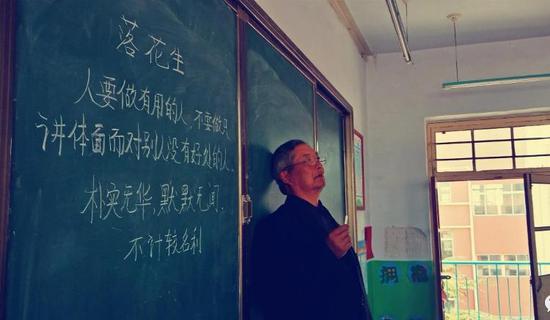 落花生
人要做有用的人,不要做只
讲体面而对别人没有好处的人。
朴实无华,默默无闻、
不计较名利